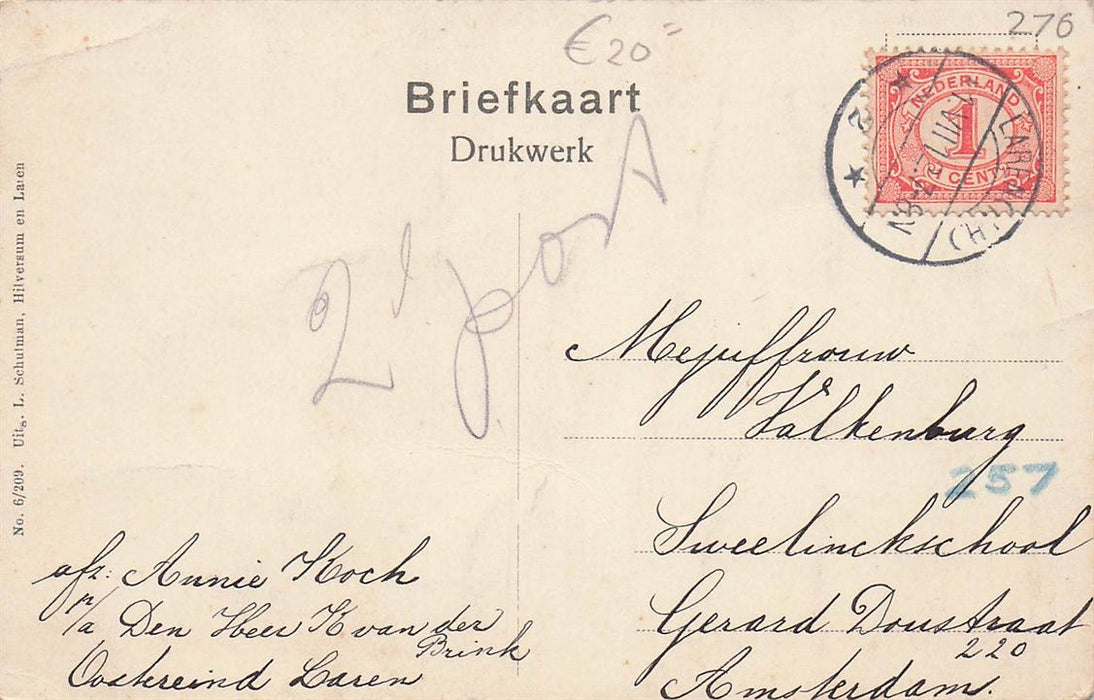 276
€ 20 =
Briefkaart
Drukwerk
NEDERLAND
1
CENT
LAREN (N.H.)
2
2e post
Mejuffrouw
Valkenburg
257
Sweelinckschool
Gerard Doustraat
220
Amsterdam
afz: Annie Koch
p/a Den Heer K van der
Brink
Oostereind Laren
No. 6/209. Uitg. L. Schulman, Hilversum en Laren